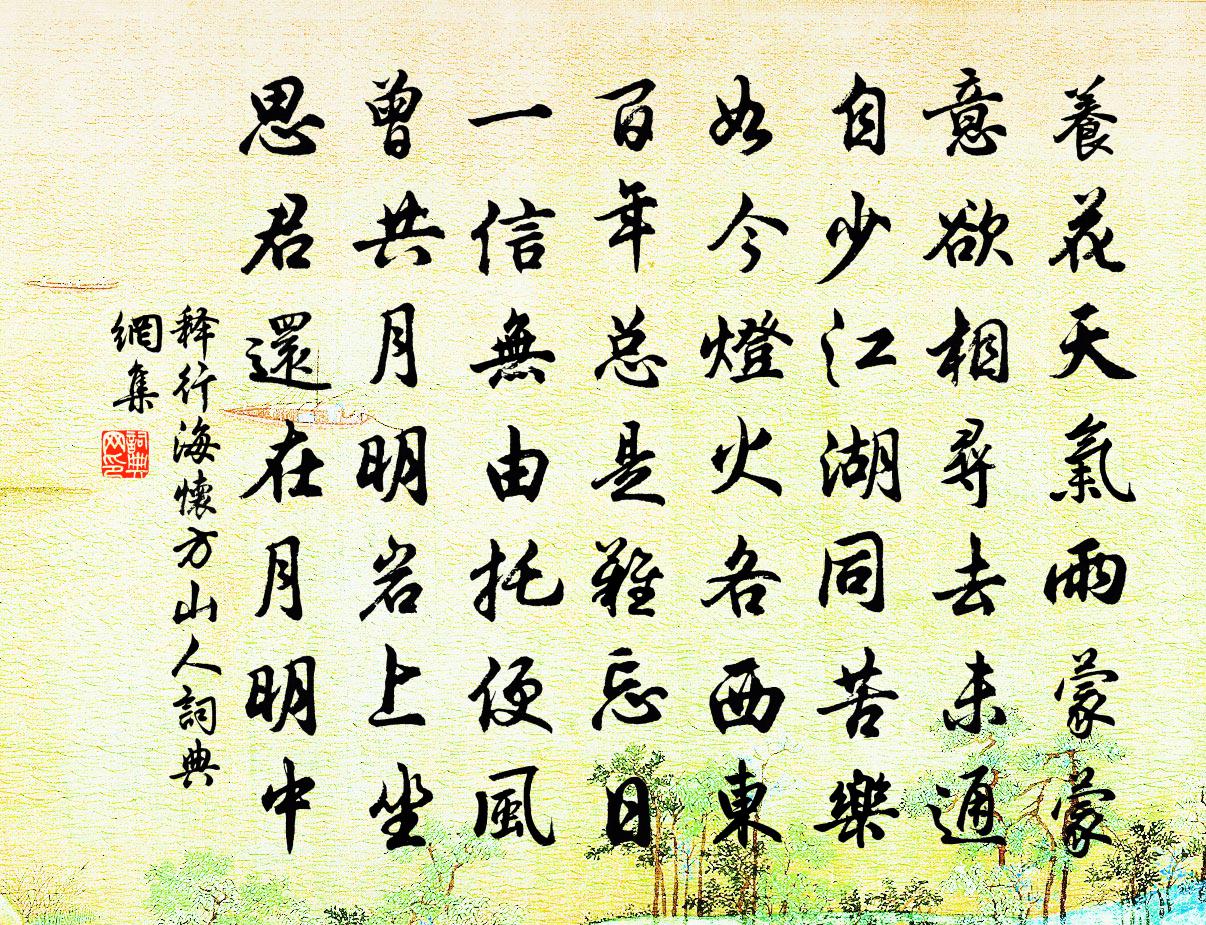 養花天氣雨蒙蒙
意欲相尋去未通
自少江湖同苦樂
如今燈火各西東
百年总是難忘日
一信無由托便風
曾共月明岩上坐
思君還在月明中
释行海懷方山人詞典
網集
詞典
网印